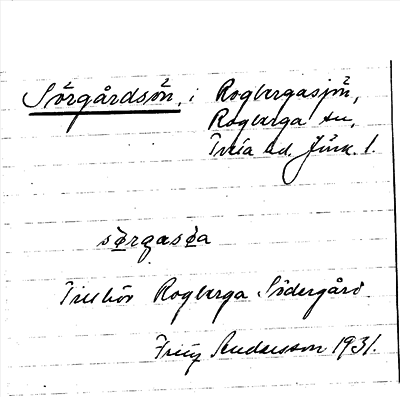 Sörgårdsön, i Rogbergasjön,
Rogberga sn,
Tveta hd. Jönk. l.
sørgasøa
Tillhör Rogberga Södergård.
Fritz Andersson 1931.